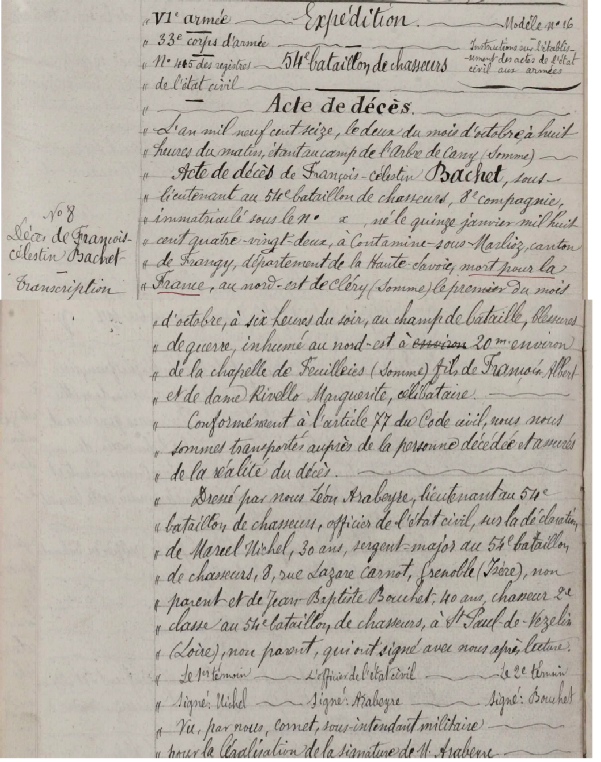 VIe armée Expédition. Modèle no 16
33e corps d'armée Instructions sur l'établis-
No 415 des registres 54e bataillon de chasseurs sement des actes de l'état
de l'état civil civil aux armées
Acte de décès.
L'an mil neuf cent seize, le deux du mois d'octobre, à huit
heures du matin, étant au camp de l'Arbre de Cany (Somme)
Acte de décès de François-Célestin Bachet, sous-
lieutenant au 54e bataillon de chasseurs, 8e compagnie,
immatriculé sous le no x, né le quinze janvier mil huit
cent quatre-vingt-deux, à Contamine-sous-Marlioz, canton
de Frangy, département de la Haute-Savoie, mort pour la
France, au nord-est de Cléry (Somme) le premier du mois
No 8
Décès de François-
Célestin Bachet
Transcription
d'octobre, à six heures du soir, au champ de bataille, blessures
de guerre, inhumé au nord-est à environ 20 m. environ
de la chapelle de Feuilleies (Somme) fils de François Albert
et de dame Rivello Marguerite, célibataire.
Conformément à l'article 77 du Code civil, nous nous
sommes transportés auprès de la personne décédée et assurés
de la réalité du décès.
Dressé par nous Léon Arabeyre, lieutenant au 54e
bataillon de chasseurs, officier de l'état civil, sur la déclaration
de Marcel Michel, 30 ans, sergent-major au 54e bataillon
de chasseurs, 8, rue Lazare Carnot, Grenoble (Isère), non
parent et de Jean Baptiste Bouchet, 40 ans, chasseur 2e
classe au 54e bataillon de chasseurs, à St Paul-de-Vezelin
(Loire), non parent, qui ont signé avec nous après lecture.
Le 1er témoin L'officier de l'état civil Le 2e témoin
Signé: Michel Signé: Arabeyre Signé: Bouchet
Vu, par nous, Cornet, sous-intendant militaire
pour la légalisation de la signature de M. Arabeyre